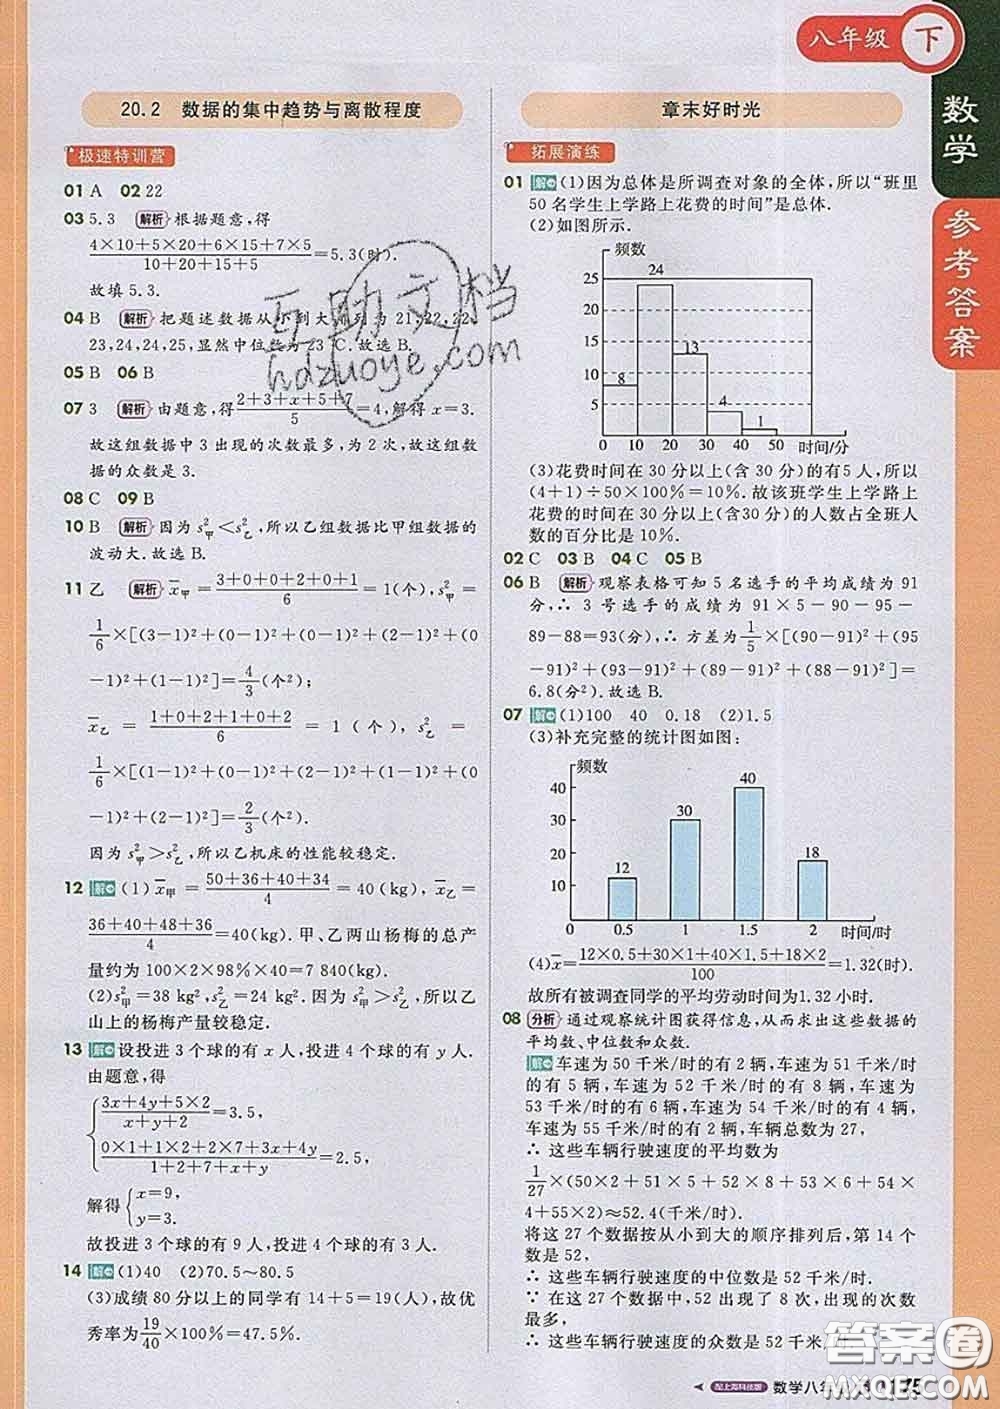 八年级 下
数学
参考答案
20.2 数据的集中趋势与离散程度
极速特训营
01 A 02 22
03 5.3 解析 根据题意,得
(4×10+5×20+6×15+7×5)/(10+20+15+5)=5.3(时).
故填 5.3.
04 B 解析 把题述数据从小到大排列为 21,22,22,
23,24,24,25,显然中位数为 23℃.故选 B.
05 B 06 B
07 3 解析 由题意,得(2+3+x+5+7)/5=4,解得 x=3.
故这组数据中 3 出现的次数最多,为 2 次,故这组数
据的众数是 3.
08 C 09 B
10 B 解析 因为 s²甲<s²乙,所以乙组数据比甲组数据的
波动大.故选 B.
11 乙 解析 x̄甲=(3+0+0+2+0+1)/6=1(个),s²甲=
1/6×[(3-1)²+(0-1)²+(0-1)²+(2-1)²+(0
-1)²+(1-1)²]=4/3(个²);
x̄乙=(1+0+2+1+0+2)/6=1(个),s²乙=
1/6×[(1-1)²+(0-1)²+(2-1)²+(1-1)²+(0
-1)²+(2-1)²]=2/3(个²).
因为 s²甲>s²乙,所以乙机床的性能较稳定.
12 解 (1)x̄甲=(50+36+40+34)/4=40(kg),x̄乙=
(36+40+48+36)/4=40(kg).甲、乙两山杨梅的总产
量约为 100×2×98%×40=7 840(kg).
(2)s²甲=38 kg²,s²乙=24 kg².因为 s²甲>s²乙,所以乙
山上的杨梅产量较稳定.
13 解 设投进 3 个球的有 x 人,投进 4 个球的有 y 人.
由题意,得
{(3x+4y+5×2)/(x+y+2)=3.5,
(0×1+1×2+2×7+3x+4y)/(1+2+7+x+y)=2.5,
解得{x=9,
y=3.
故投进 3 个球的有 9 人,投进 4 个球的有 3 人.
14 解 (1)40 (2)70.5~80.5
(3)成绩 80 分以上的同学有 14+5=19(人),故优
秀率为19/40×100%=47.5%.
章末好时光
拓展演练
01 解 (1)因为总体是所调查对象的全体,所以“班里
50 名学生上学路上花费的时间”是总体.
(2)如图所示.
频数
25
20
15
10
5
0 10 20 30 40 50 时间/分
8 24 13 4 1
(3)花费时间在 30 分以上(含 30 分)的有 5 人,所以
(4+1)÷50×100%=10%.故该班学生上学路上
花费的时间在 30 分以上(含 30 分)的人数占全班人
数的百分比是 10%.
02 C 03 B 04 C 05 B
06 B 解析 观察表格可知 5 名选手的平均成绩为 91
分,∴ 3 号选手的成绩为 91×5-90-95-
89-88=93(分),∴ 方差为1/5×[(90-91)²+(95
-91)²+(93-91)²+(89-91)²+(88-91)²]=
6.8(分²).故选 B.
07 解 (1)100 40 0.18 (2)1.5
(3)补充完整的统计图如图:
频数
40
30
20
10
0 0.5 1 1.5 2 时间/时
12 30 40 18
(4)x̄=(12×0.5+30×1+40×1.5+18×2)/100=1.32(时).
故所有被调查同学的平均劳动时间为 1.32 小时.
08 分析 通过观察统计图获得信息,从而求出这些数据的
平均数、中位数和众数.
解 车速为 50 千米/时的有 2 辆,车速为 51 千米/时
的有 5 辆,车速为 52 千米/时的有 8 辆,车速为
53 千米/时的有 6 辆,车速为 54 千米/时的有 4 辆,
车速为 55 千米/时的有 2 辆,车辆总数为 27,
∴ 这些车辆行驶速度的平均数为
1/27×(50×2+51×5+52×8+53×6+54×
4+55×2)≈52.4(千米/时).
将这 27 个数据按从小到大的顺序排列后,第 14 个
数是 52,
∴ 这些车辆行驶速度的中位数是 52 千米/时.
∵ 在这 27 个数据中,52 出现了 8 次,出现的次数
最多,
∴ 这些车辆行驶速度的众数是 52 千米/
配上海科技版 数学八年 175
互助文档
hdzuoye.com
答案卷